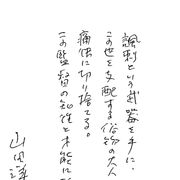 諷刺という武器を手に、
この世を支配する俗物の大人
痛快に切り捨てる。
この監督の知性と才能に
山田洋